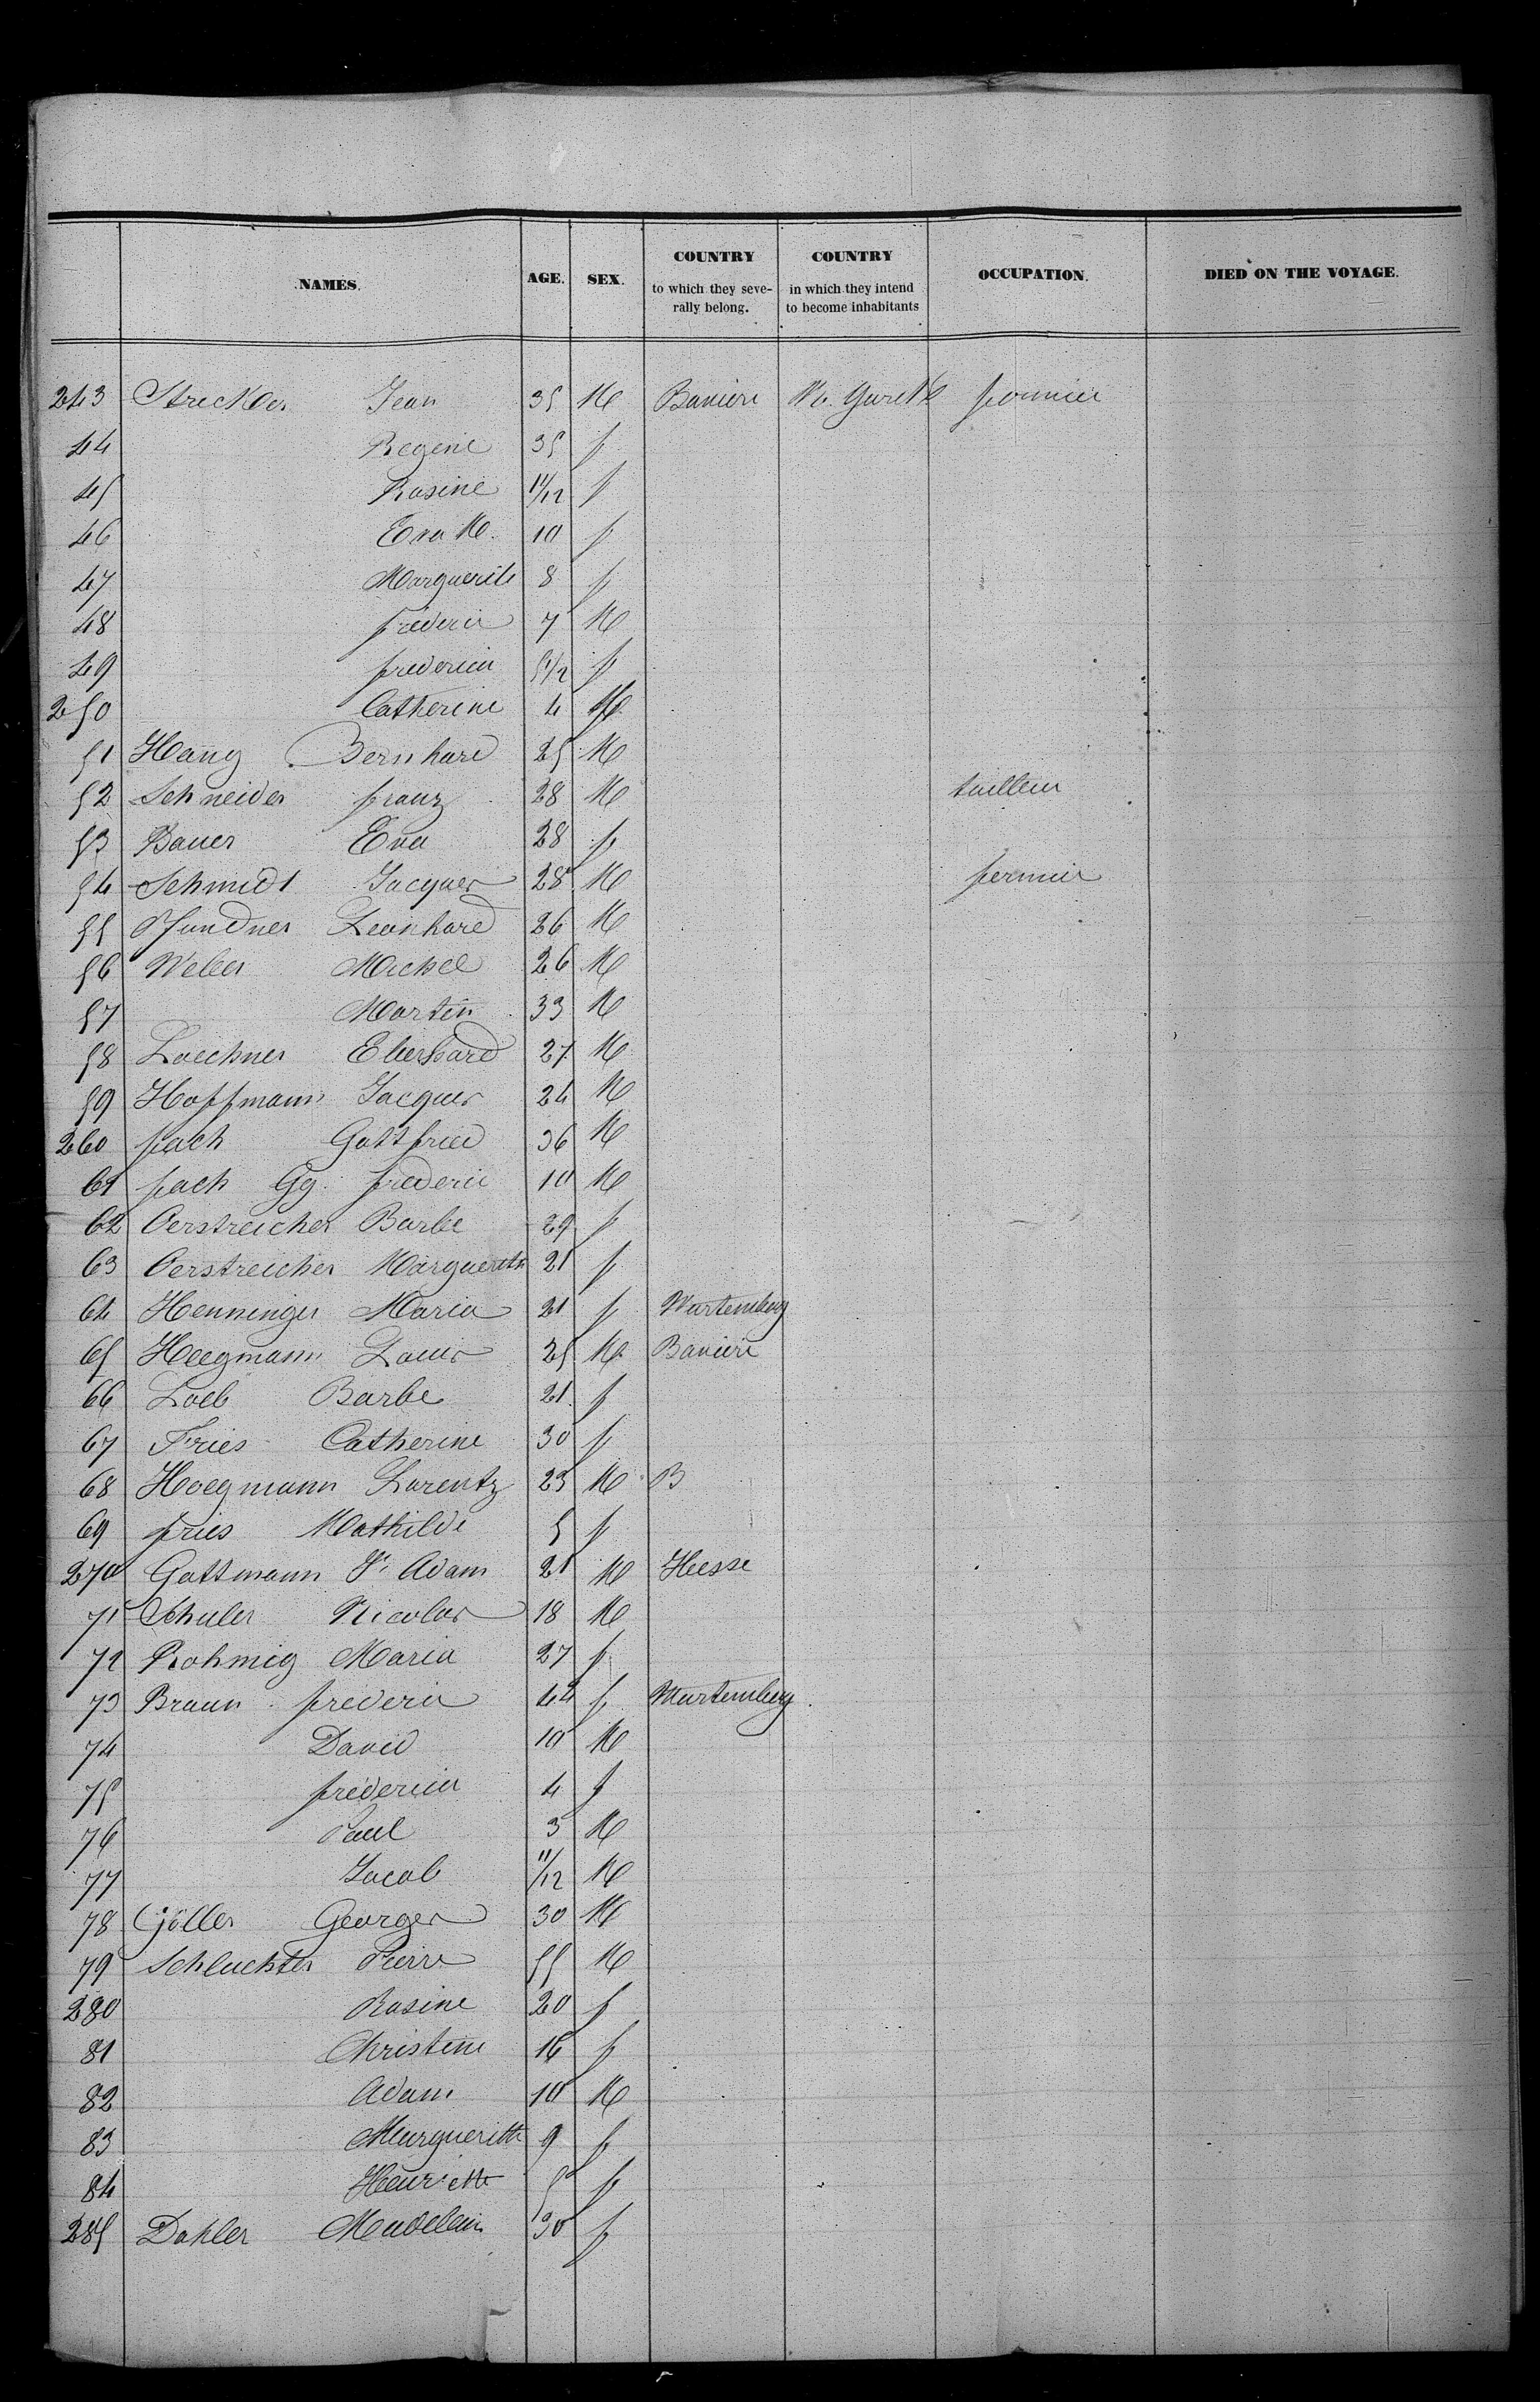 NAMES. AGE. SEX. COUNTRY to which they severally belong. COUNTRY in which they intend to become inhabitants OCCUPATION. DIED ON THE VOYAGE.
243 Strecker Jean 35 M Baviere fermier
44 Regine 35 f
45 Rosine 11/12 f
46 Eva M. 10 f
47 Marguerite 8 f
48 frederic 7 M
49 frederica 5 1/2 f
250 Catherine 4
51 Haug Bernhard 25 M
52 Schneider franz 28 M tailleur
53 Bauer Eva 28 f
54 Schmidt Jacques 28 M fermier
55 Pfundner Leonhard 26 M
56 Weber Michel 26 M
57 Martin 33 M
58 Loechner Eberhard 27 M
59 Hoffmann Jacques 24 M
260 fach Gottfried 36 M
61 fach Gg. frederic 10 M
62 Oerstreicher Barbe 29 f
63 Oerstreicher Marguerith 21 f
64 Henninger Maria 21 f Wurtemberg
65 Heegmann Louis 25 M Baviere
66 Loeb Barbe 21 f
67 Fries Catherine 30 f
68 Hoegmann Lorentz 23 M B
69 fries Mathilde 5 f
270 Gottmann Adam 21 M Hesse
71 Schuler Nicolas 18 M
72 Rohmig Maria 27 f
73 Braun frederic 44 f Wurtemberg
74 David 10 M
75 frederica 4 f
76 Paul 3 M
77 Jacob 11/12 M
78 Göller Georges 30 M
79 Schluchter Pierre 55 M
280 Rosine 20 f
81 Christine 16 f
82 Adam 10 M
83 Margueritte 9 f
84 Henriette 5 f
285 Dahler Madelein 30 f